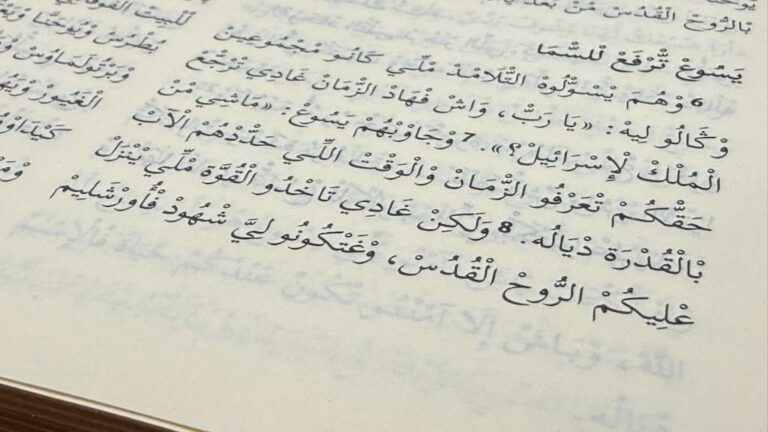 بْالرُّوحْ الْقُدُسْ مْنْ بَعْدْ
يَسُوعْ تّْرْفَعْ لْلسّْمَا
6 وْهُمَ يْسْوّْلُوهْ التّْلَامْدْ مْلّْي كَانُو مْجْمُوعِينْ
وْݣَالُو لِيهْ: «يَا رَبّْ، وَاشْ فْهَادْ الزّْمَانْ غَادِي تْرْجّْعْ
الْمُلْكْ لْإِسْرَائِيلْ؟». 7 وْجَاوْبْهُمْ يَسُوعْ: «مَاشِي مْنْ
حَقّْكُمْ تْعَرْفُو الزّْمَانْ وْالْوَقْتْ اللّْي حَدّْدْهُمْ الْآبْ
بْالْقُدْرَة دْيَالُه. 8 وَلَكِنْ غَادِي تَاخْدُو الْقُوَّة مْلّْي يْنْزَلْ
عْلِيكُمْ الرُّوحْ الْقُدُسْ، وْغَتْكُونُو لِيَّ شْهُودْ فْأُورْشَلِيمْ
لْلْبِيتْ الْفُوقَانِي
بُطْرُسْ وْيُوحَنَّا
وْبَرْتُولْمَاوُسْ
الْغَيُورْ